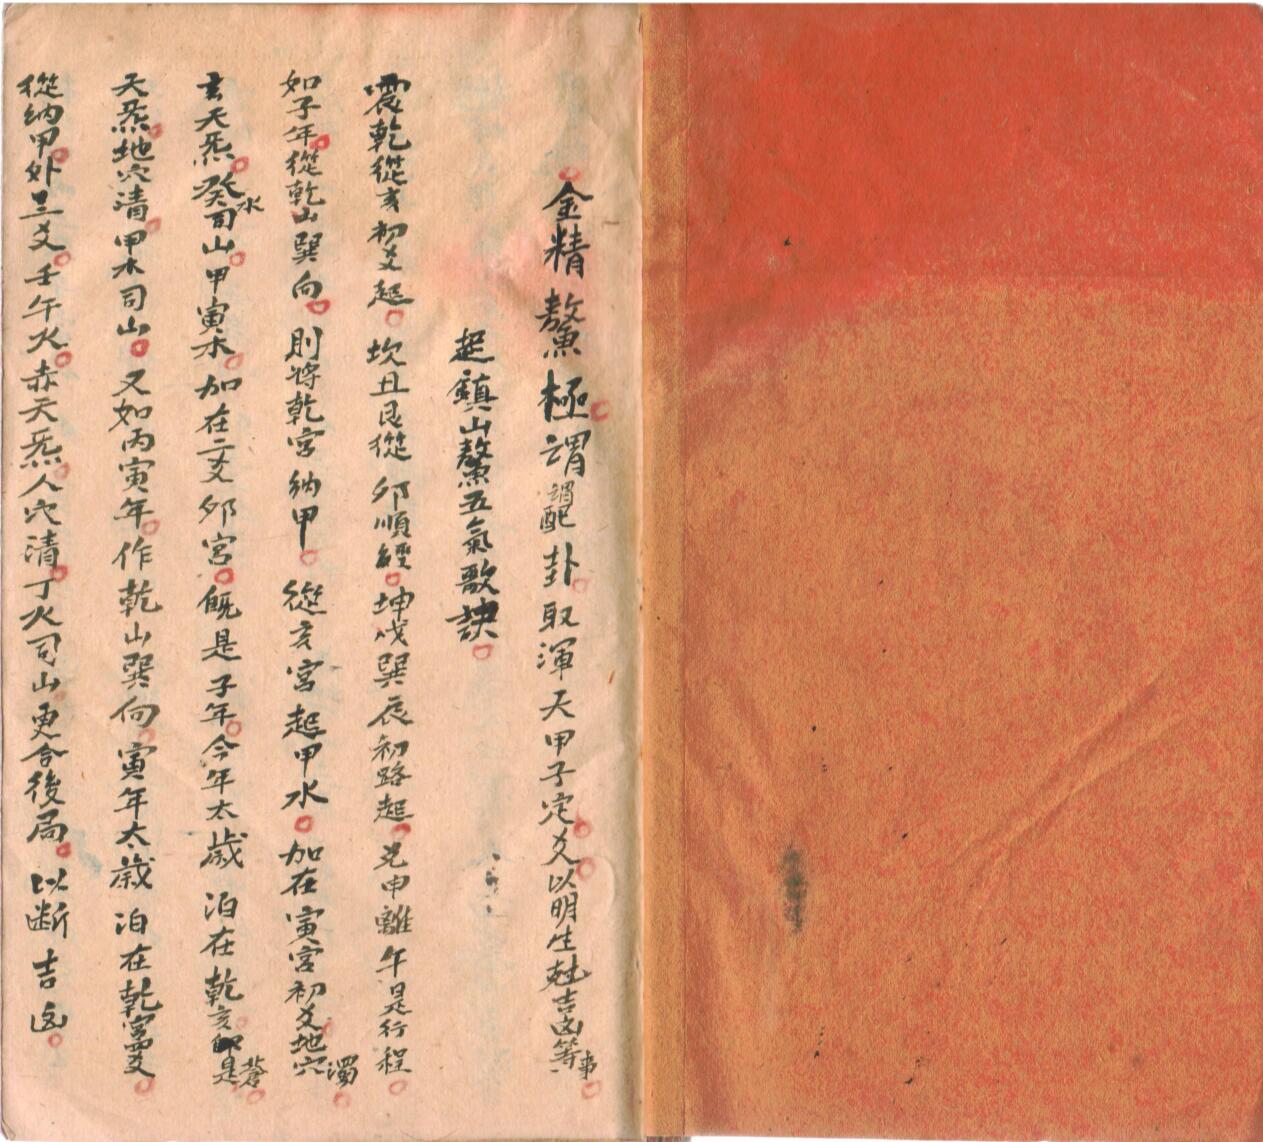 金精鰲極謂謂配卦取渾天甲子定爻以明生尅吉凶等事
起鎮山鰲五氣歌訣
震乾從亥初爻起坎丑艮從夘順經坤戌巽辰初路起兑申離午是行程
如子年從乾山巽向則將乾宮納甲從亥宮起甲水加在寅宮初爻地穴濁
玄天炁癸水司山甲寅木加在二爻夘宮既是子年今年太歲泊在乾亥即是蒼
天炁地穴清甲木司山又如丙寅年作乾山巽向寅年太歲泊在乾宮四爻
從納甲外三爻壬午火赤天炁人穴清丁火司山更合後局以断吉凶